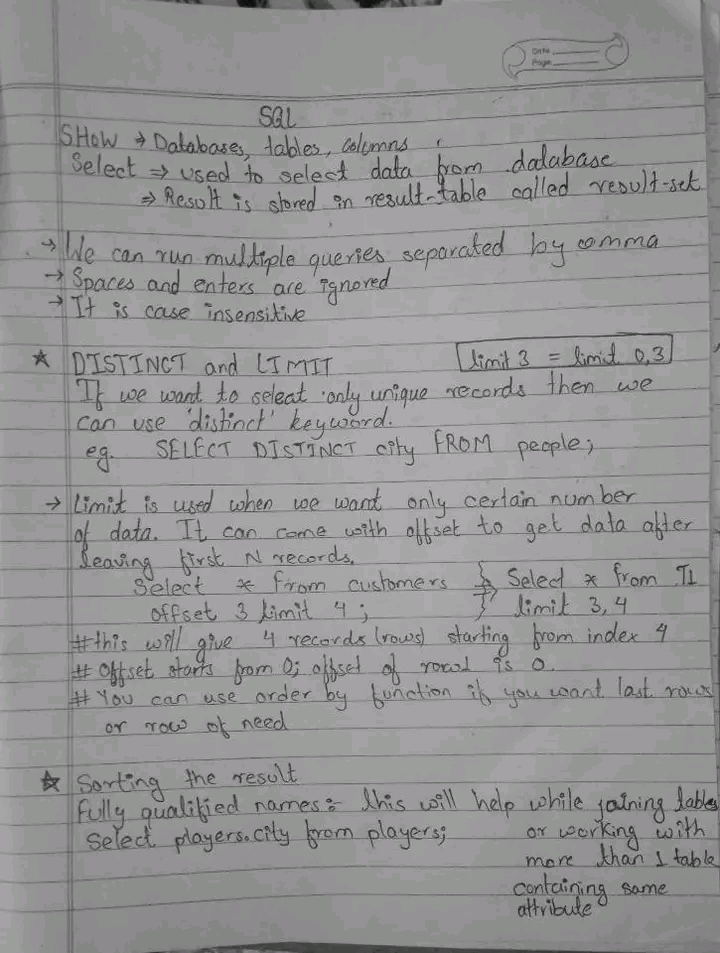 Date
Page
SQL
SHOW → Databases, tables, columns
Select ⇒ used to select data from database
⇒ Result is stored in result-table called result-set
→ We can run multiple queries separated by comma
→ Spaces and enters are ignored
→ It is case insensitive
★ DISTINCT and LIMIT limit 3 = limit 0,3
If we want to select only unique records then we
can use 'distinct' keyword.
eg. SELECT DISTINCT city FROM people;
→ Limit is used when we want only certain number
of data. It can come with offset to get data after
leaving first N records.
Select * from customers } ⇒ Select * from T1
offset 3 limit 4; limit 3,4
# this will give 4 records (rows) starting from index 4
# Offset starts from 0; offset of row1 is 0.
# You can use order by function if you want last rows
or row of need
★ Sorting the result
Fully qualified names :- this will help while joining tables
Select players.city from players; or working with
more than 1 table
containing same
attribute